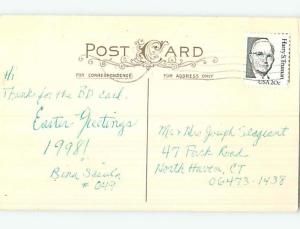 POST CARD
FOR CORRESPONDENCE
FOR ADDRESS ONLY
Harry S. Truman
USA 20c
Hi
Thanks for the BD card.
Easter Greetings
1998!
# 049
Mr & Mrs Joseph Sergeant
47 Park Road
North Haven, CT
06473-1438